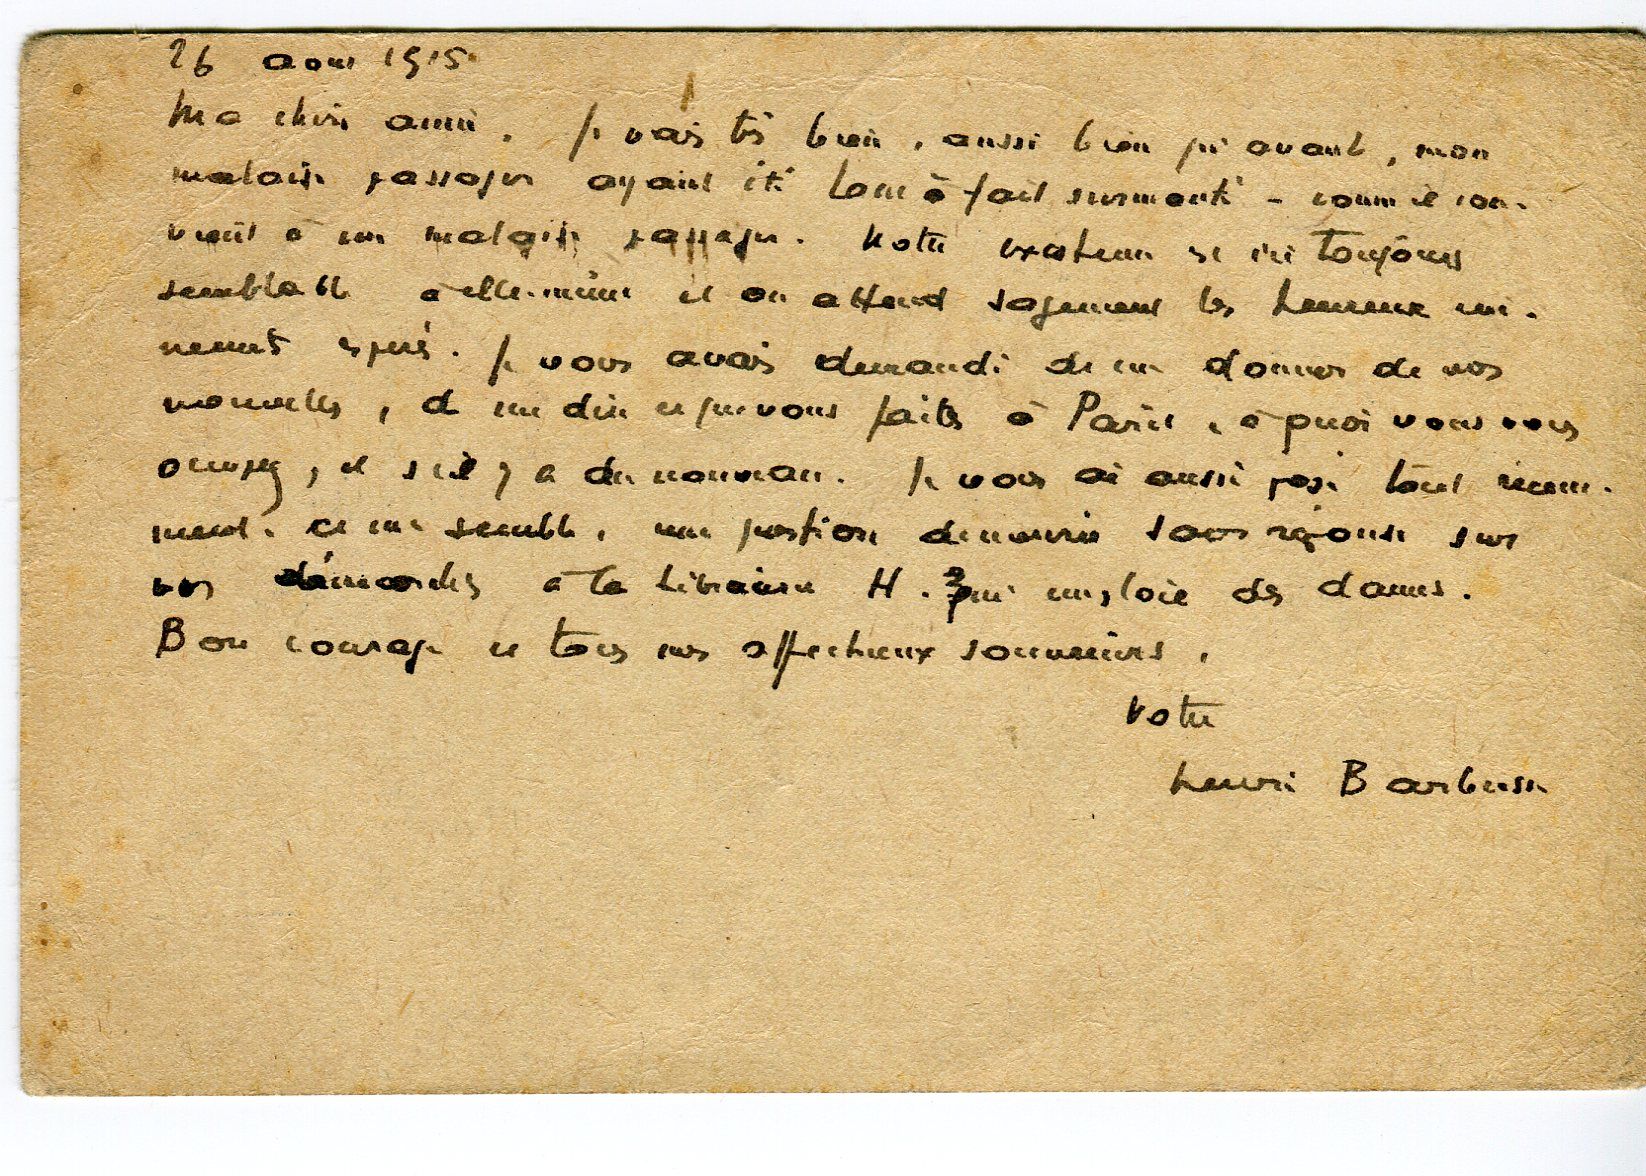 26 août 1915.
Ma chère amie. Je vais très bien, aussi bien qu'avant, mon
malaise passager ayant été tout à fait surmonté – comme il con-
vient à un malaise passager. Notre existence ici toujours
semblable à elle-même et on attend sagement les heureux évé-
nements espérés. Je vous avais demandé de me donner de vos
nouvelles, et me dire ce que vous faites à Paris, à quoi vous vous
occupez, et s'il y a du nouveau. Je vous ai aussi posé tout récem-
ment, ce me semble, une question demeurée sans réponse sur
vos démarches à la librairie H. qui emploie des dames.
Bon courage et tous mes affectueux souvenirs,
Votre
Henri Barbusse